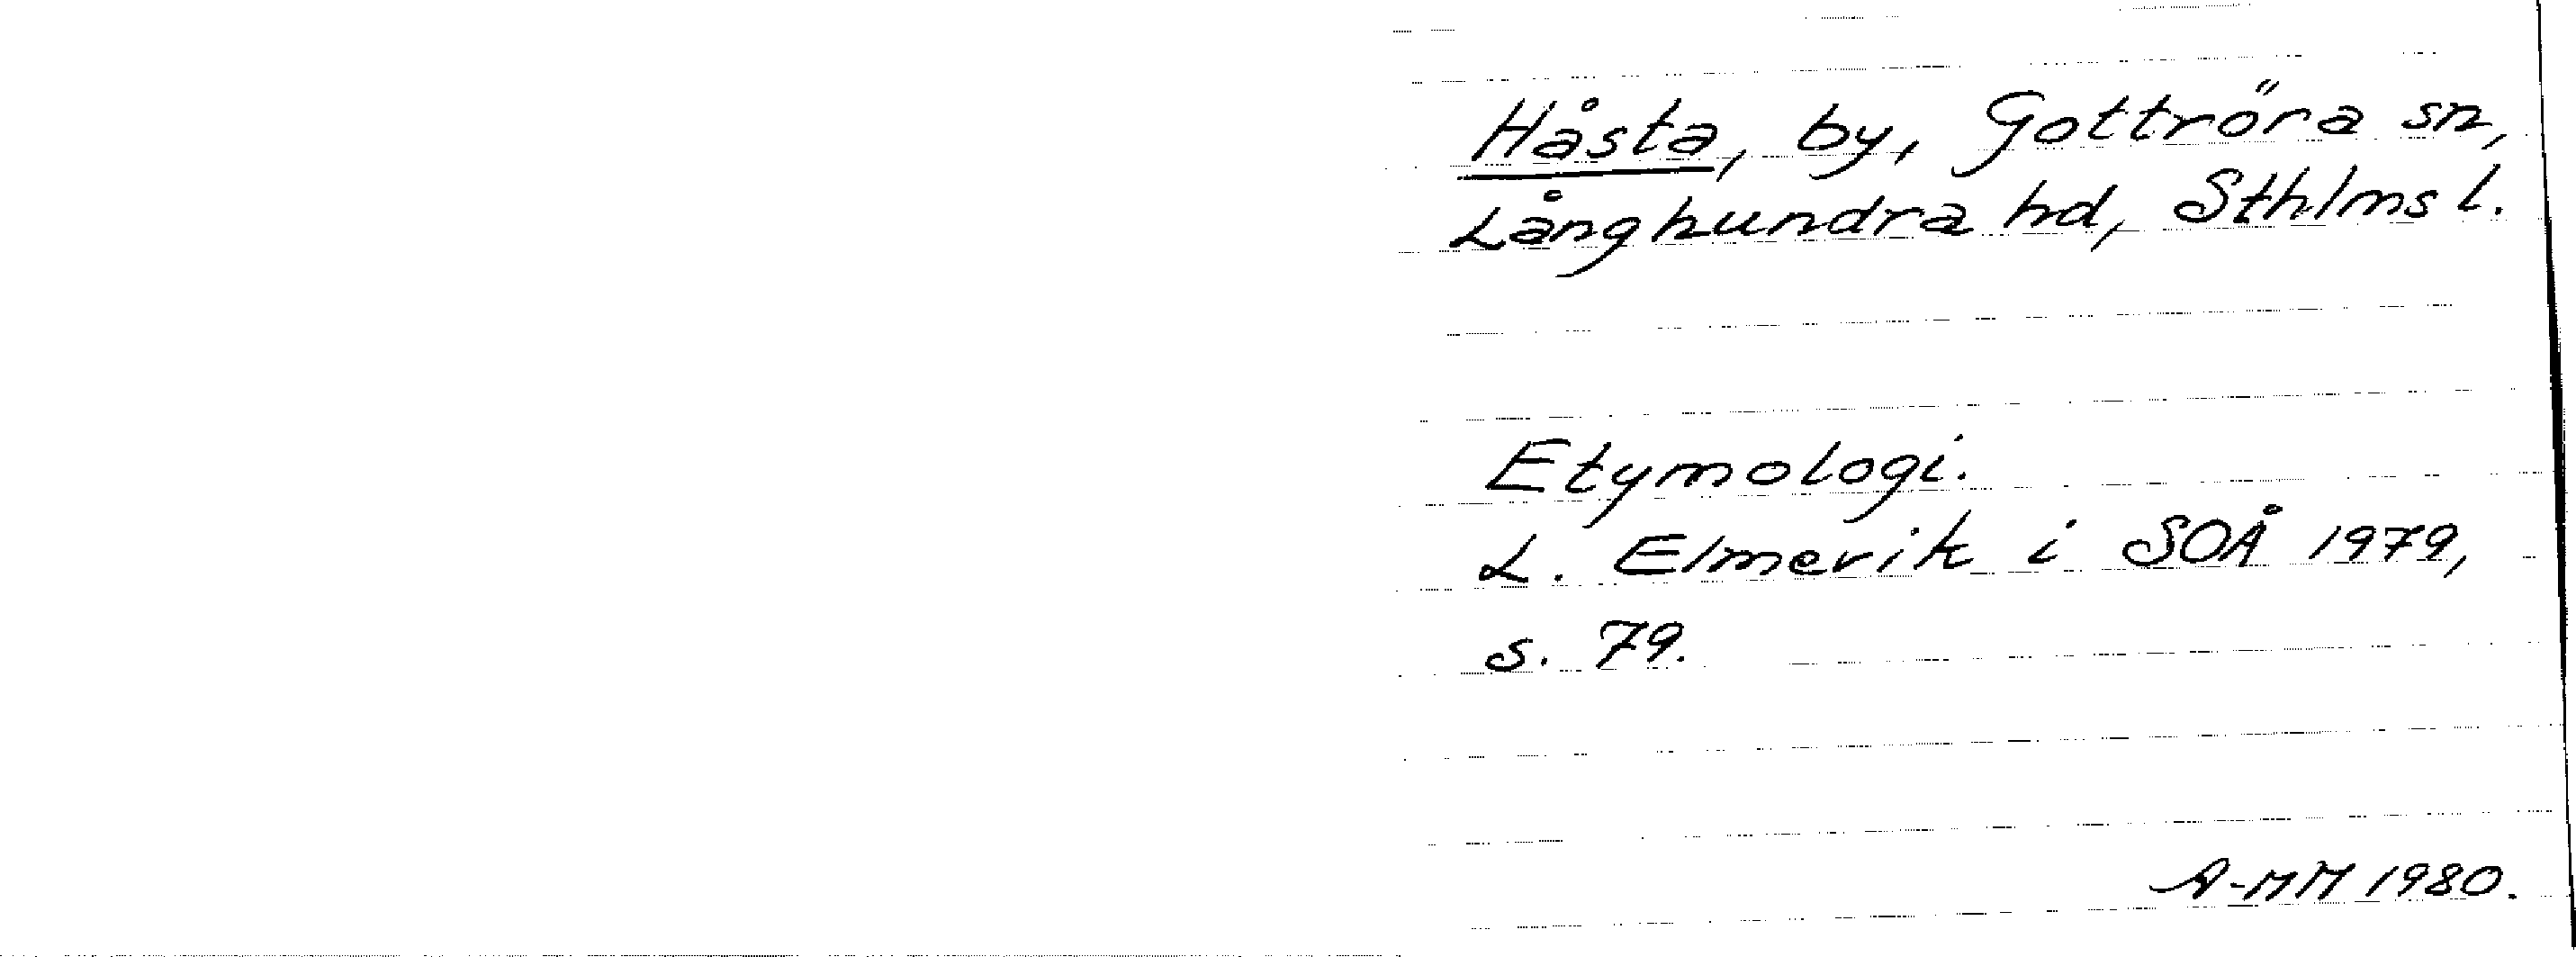 Håsta, by, Gottröra sn,
Långhundra hd, Sthlms l.
Etymologi.
L. Elmevik i SOÅ 1979,
s. 79.
A-MM 1980.